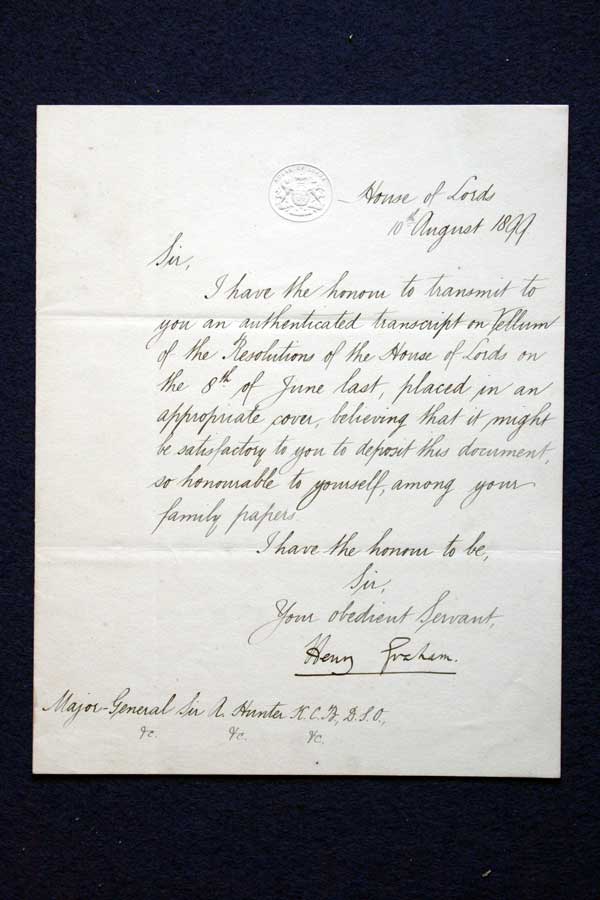 House of Lords
10th August 1899
Sir,
I have the honour to transmit to
you an authenticated transcript on Vellum
of the Resolutions of the House of Lords on
the 8th of June last, placed in an
appropriate cover, believing that it might
be satisfactory to you to deposit this document,
so honourable to yourself, among your
family papers.
I have the honour to be,
Sir,
Your obedient Servant,
Henry Graham.
Major-General Sir A. Hunter K.C.B., D.S.O.,
&c. &c. &c.